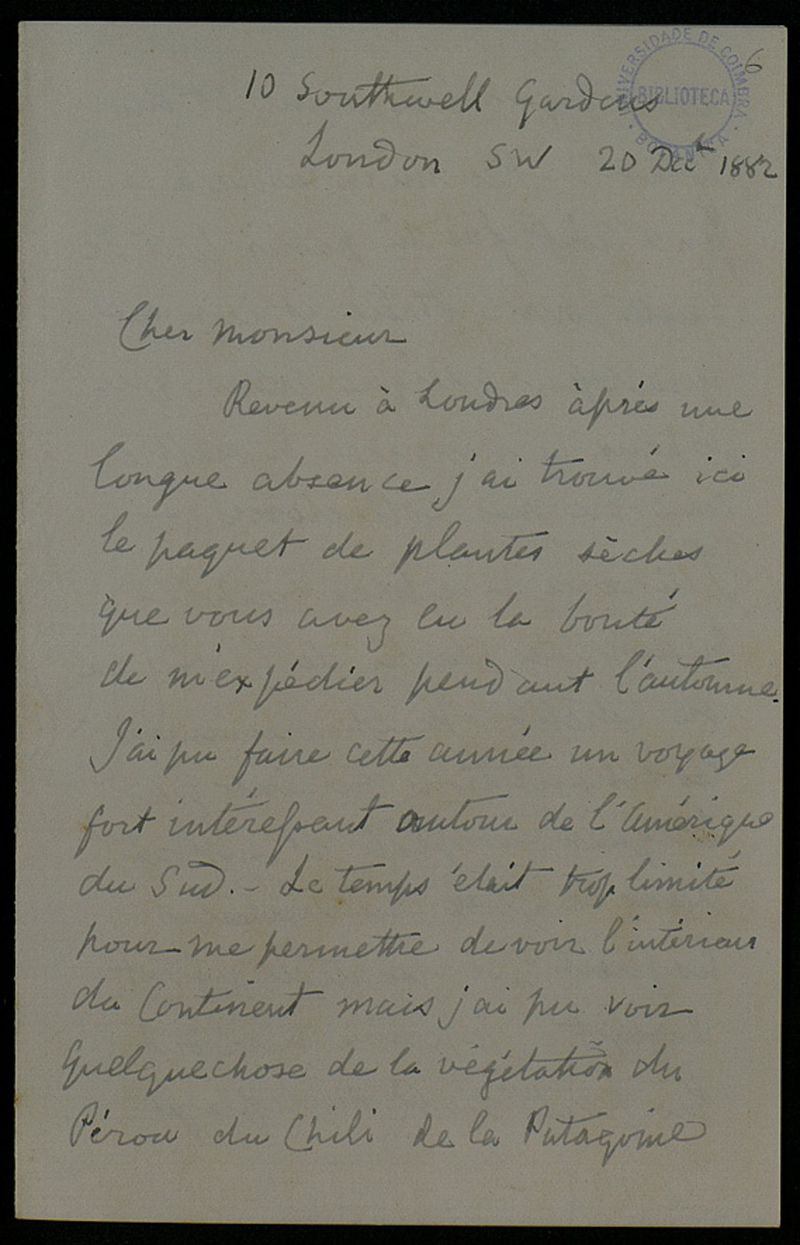 6
UNIVERSIDADE DE COIMBRA
BIBLIOTECA
BOTANICA
10 Southwell Gardens
London SW 20 Decr 1882
Cher Monsieur
Revenu à Londres àprés une
longue absence j'ai trouvé ici
le paquet de plantes sèches
que vous avez eu la bonté
de m'expédier pendant l'automne.
J'ai pu faire cette année un voyage
fort intéressant autour de l'Amérique
du Sud. - Le temps était trop limité
pour me permettre de voir l'intérieur
du Continent mais j'ai pu voir
quelquechose de la végétation du
Pérou du Chili de la Patagonie